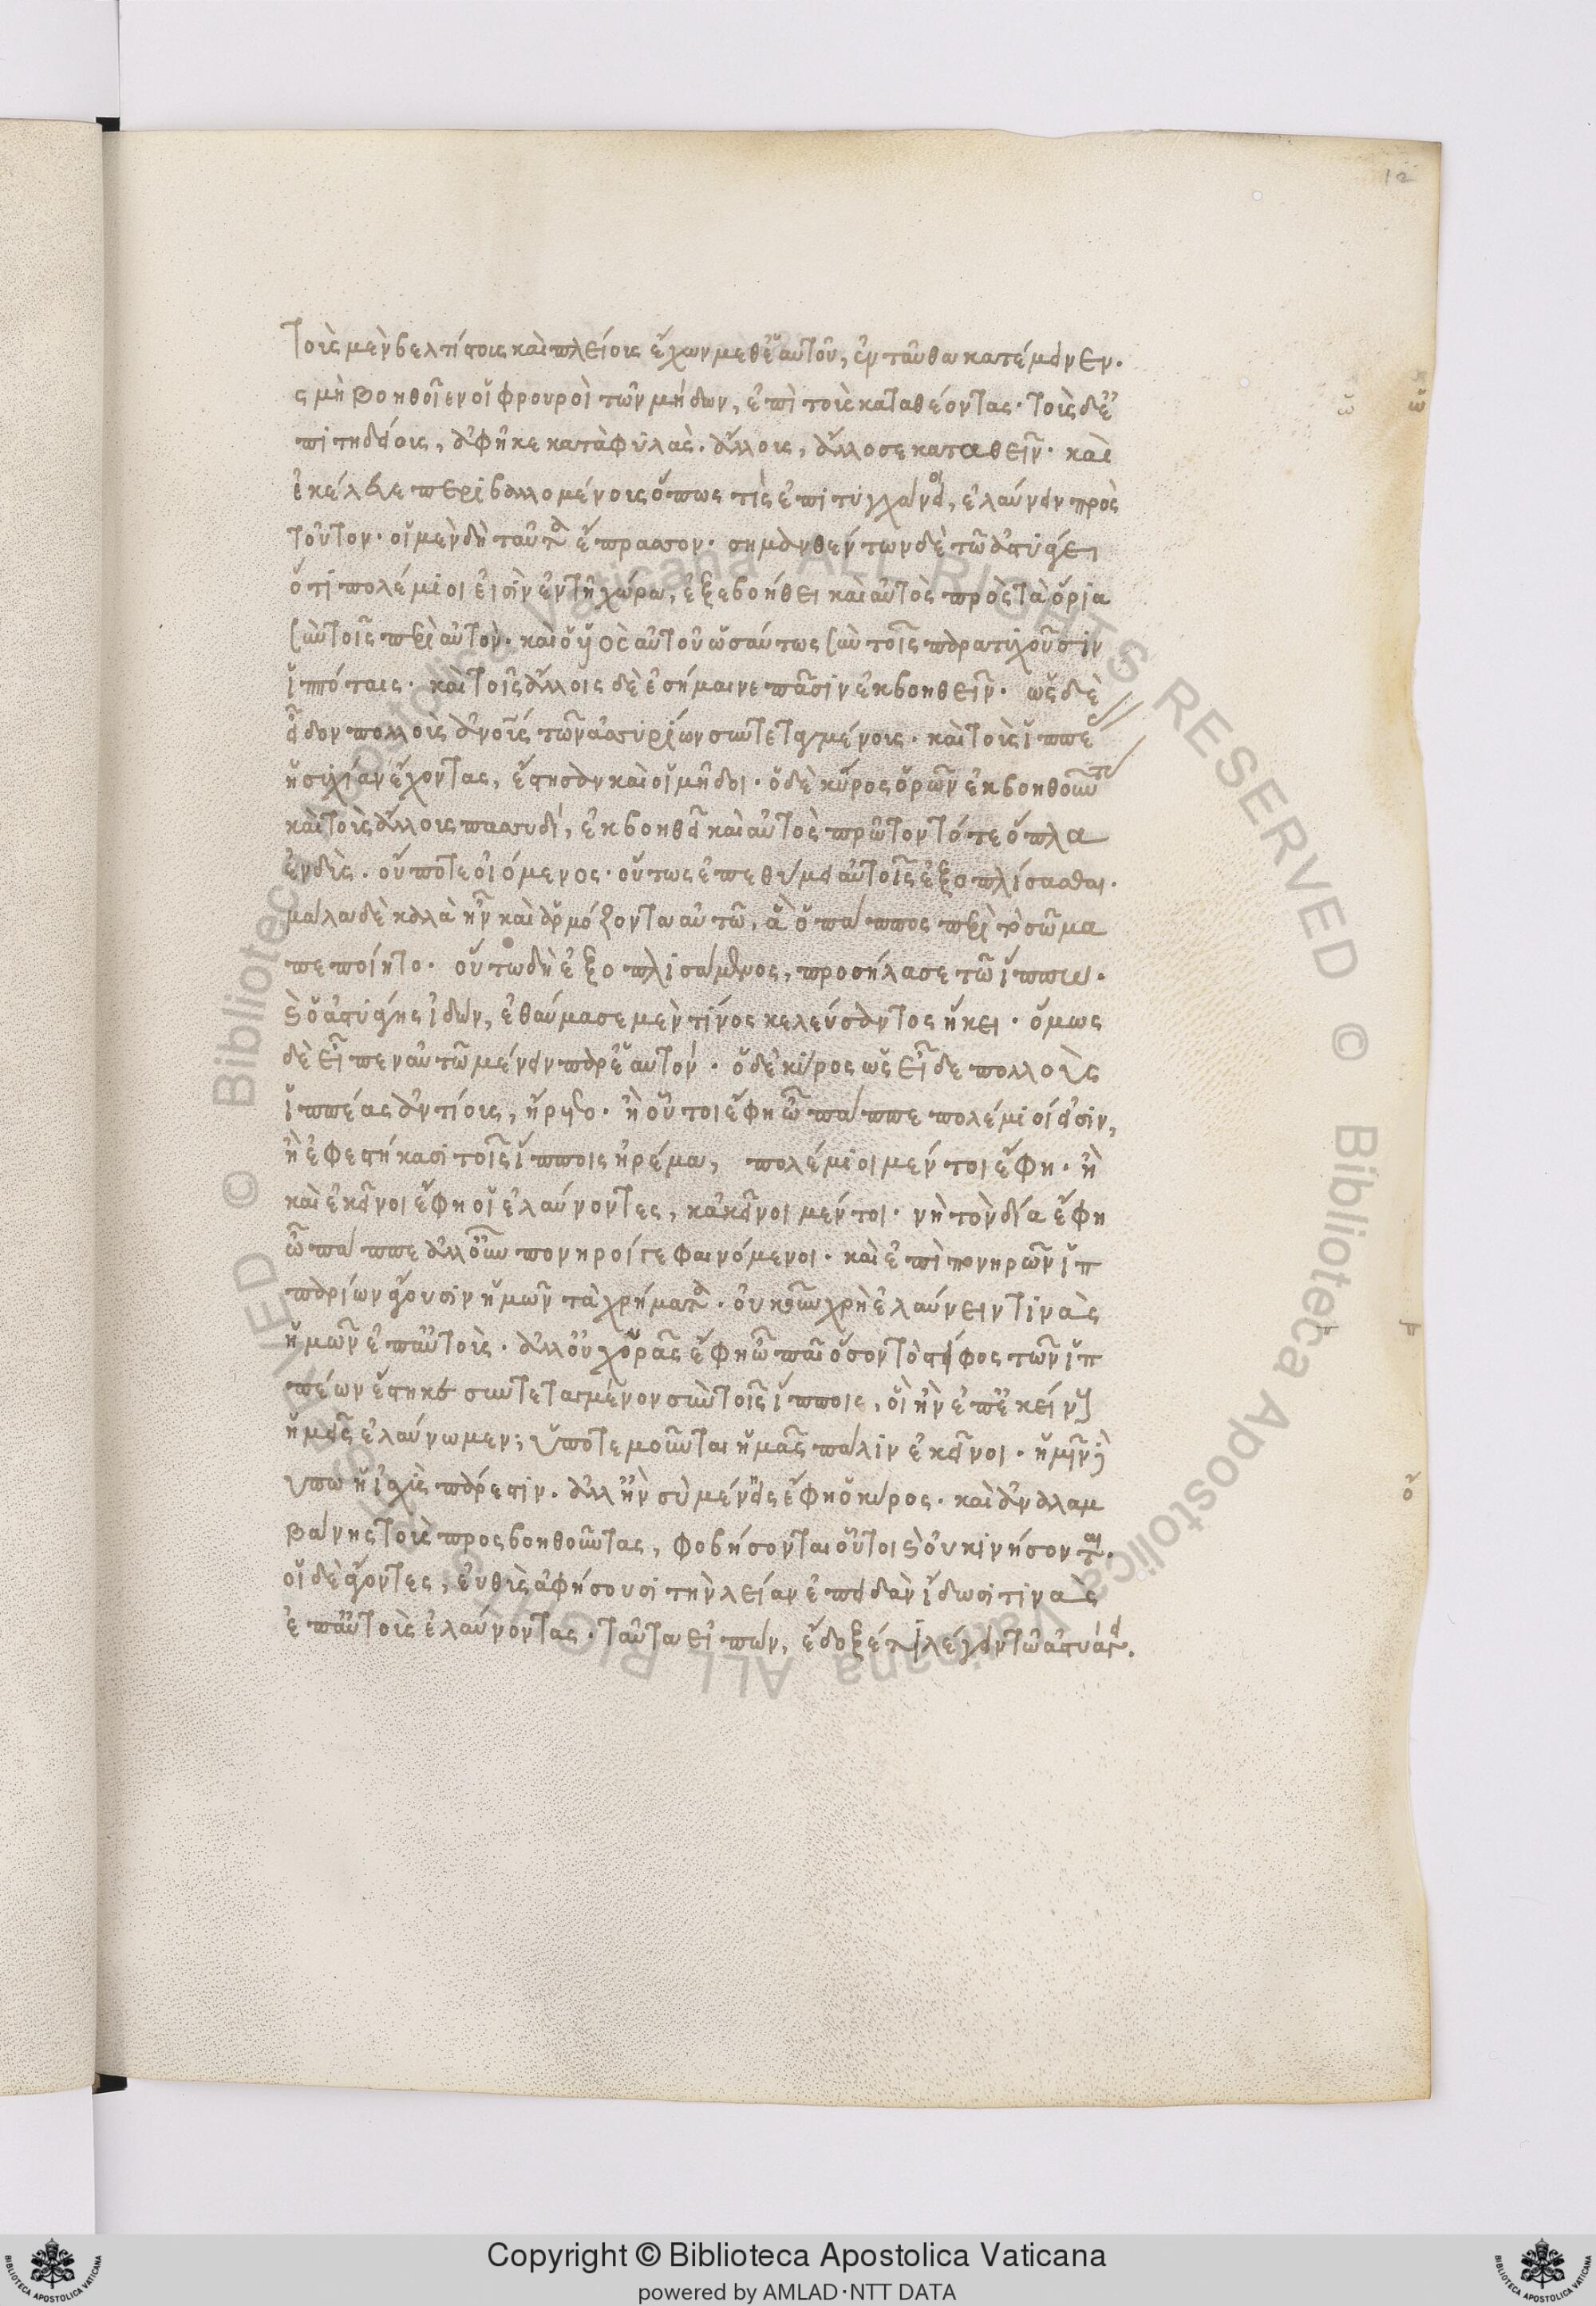 12
τοὺς μὲν βελτίστους καὶ πλείους ἔχων μεθ' ἑαυτοῦ, ἐνταῦθα κατέμεινεν.
ὡς μὴ βοηθοῖεν οἱ φρουροὶ τῶν μήδων, ἐπὶ τοὺς καταθέοντας· τοὺς δ' ἐ
πιτηδείους, ἀφῆκε κατὰ φυλὰς. ἄλλους, ἄλλοσε καταθεῖν· καὶ
ἐκέλευε περιβαλλομένους ὅπως τὶς ἐπιτυγχάνοι, ἐλαύνειν πρὸς
τοῦτον· οἱ μὲν δὴ ταῦτα ἔπραττον. σημανθέντων δὲ τῶ ἀστυάγει
ὅτι πολέμιοι εἰσὶν ἐν τῆ χώρα, ἐξεβοήθει καὶ αὐτὸς πρὸς τὰ ὅρια
σὺν τοῖς περὶ αὐτὸν. καὶ ὁ υἱὸς αὐτοῦ ὡσαύτως σὺν τοῖς παρατυχοῦσιν
ἱππόταις. καὶ τοῖς ἄλλοις δὲ ἐσήμαινε πᾶσιν ἐκβοηθεῖν. ὡς δὲ
εἶδον πολλοὺς ἀνους τῶν ἀσσυρίων συντεταγμένους. καὶ τοὺς ἱππε
ἡσυχίαν ἔχοντας, ἔστησαν καὶ οἱ μῆδοι. ὁ δὲ κῦρος ὁρῶν ἐκβοηθοῦντ
καὶ τοὺς ἄλλους πασσυδί, ἐκβοηθεῖ καὶ αὐτὸς πρῶτον τότε ὅπλα
ἐνδὺς. οὔποτε οἰόμενος. οὕτως ἐπεθύμει αὐτοῖς ἐξοπλίσασθαι.
μάλα δὲ καλὰ ἦν καὶ ἁρμόζοντα αὐτῶ, ἃ ὁ πάππος περὶ τὸ σῶμα
πεποίητο. οὕτω δὴ ἐξοπλισάμενος, προσήλασε τῶ ἵππω.
καὶ ὁ ἀστυάγης ἰδὼν, ἐθαύμασε μὲν τίνος κελεύσαντος ἥκει. ὅμως
δὲ εἶπεν αὐτῶ μένειν παρ' ἑαυτόν. ὁ δὲ κύρος ὡς εἶδε πολλοὺς
ἱππέας ἀντίους, ἤρετο. ἦ οὗτοι ἔφη ὦ πάππε πολέμιοί εἰσιν,
ἢ ἐφεστήκασι τοῖς ἵπποις ἠρέμα, πολέμιοι μέντοι ἔφη. ἦ
καὶ ἐκεῖνοι ἔφη οἱ ἐλαύνοντες, κἀκεῖνοι μέντοι. νὴ τὸν δία ἔφη
ὦ πάππε ἀλλ' οὖν πονηροί γε φαινόμενοι. καὶ ἐπὶ πονηρῶν ἱπ
παρίων ἄγουσιν ἡμῶν τὰ χρήματα. οὐκοῦν χρὴ ἐλαύνειν τινὰς
ἡμῶν ἐπ' αὐτοὺς. ἀλλ' οὐχ ὁρᾶς ἔφη ὦ παῖ ὅσον τὸ στίφος τῶν ἱπ
πέων ἕστηκε συντεταγμένον σὺν τοῖς ἵπποις, οἳ ἢν ἐπ' ἐκείνους
ἡμεῖς ἐλαύνωμεν; ὑποτεμοῦνται ἡμᾶς πάλιν ἐκεῖνοι. ἡμῖν δὲ
ὕπω ἡ ἰσχὺς πάρεστιν. ἀλλ' ἢν σὺ μένης ἔφη ὁ κύρος. καὶ ἀναλαμ
βάνης τοὺς προσβοηθοῦντας, φοβήσονται οὗτοι καὶ οὐ κινήσονται.
οἱ δὲ ἄγοντες, εὐθὺς ἀφήσουσι τὴν λείαν ἐπειδὰν ἴδωσι τινὰς
ἐπ' αὐτοὺς ἐλαύνοντας. ταῦτα εἰπὼν, ἔδοξέ τι λέγειν τῶ ἀστυάγει.
Copyright © Biblioteca Apostolica Vaticana
powered by AMLAD·NTT DATA